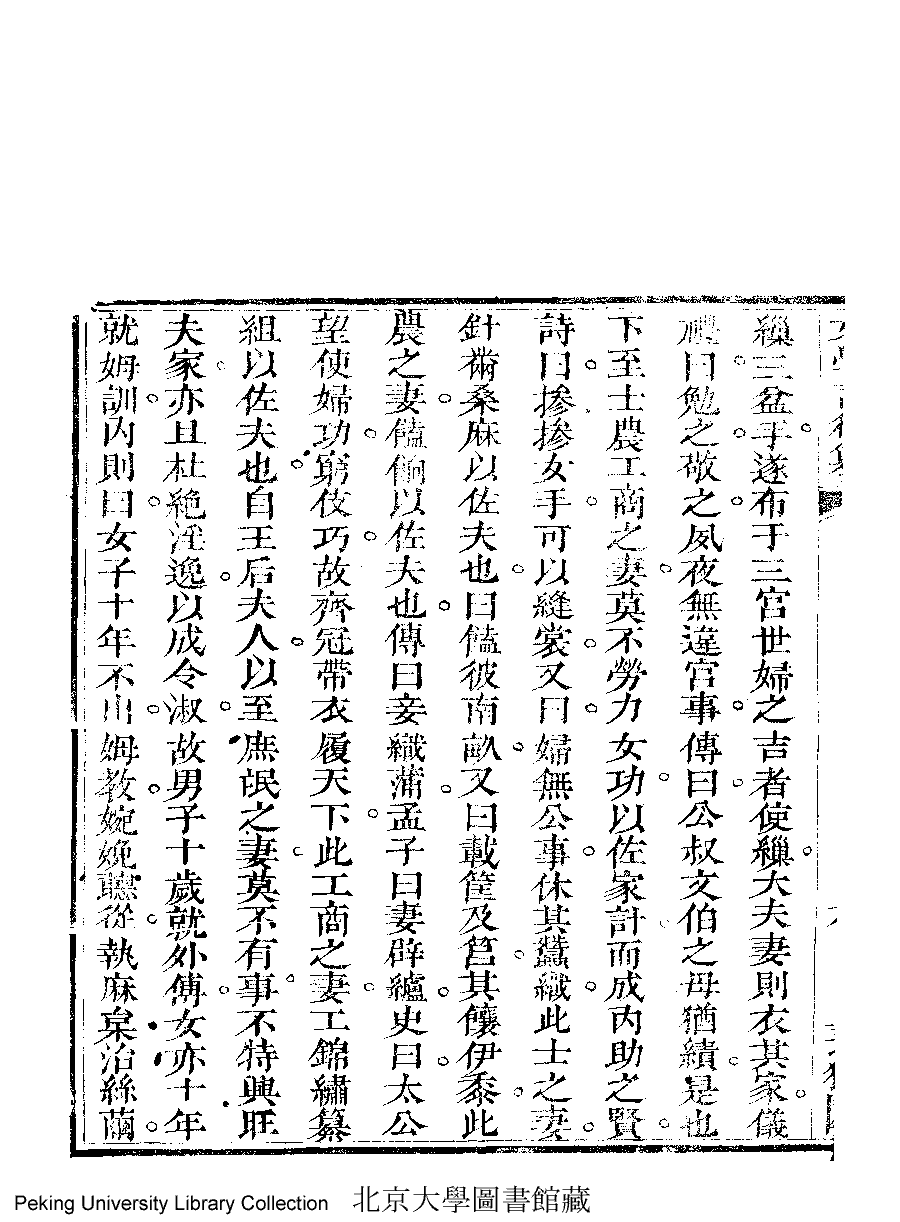 繅三盆手遂布于三宮世婦之吉者使繅大夫妻則衣其家儀
禮曰勉之敬之夙夜無違宮事傳曰公叔文伯之母猶績是也
下至士農工商之妻莫不勞力女功以佐家計而成内助之賢
詩曰摻摻女手可以縫裳又曰婦無公事休其蠶織此士之妻
針黹桑麻以佐夫也曰饁彼南畝又曰載筐及筥其饟伊黍此
農之妻饁餉以佐夫也傳曰妾織蒲孟子曰妻辟纑史曰太公
望使婦功窮伎巧故齊冠帶衣履天下此工商之妻工錦繡纂
組以佐夫也自王后夫人以至庶氓之妻莫不有事不特興旺
夫家亦且杜絶淫逸以成令淑故男子十歲就外傅女亦十年
就姆訓内則曰女子十年不出姆教婉娩聽從執麻枲治絲繭
Peking University Library Collection 北京大學圖書館藏